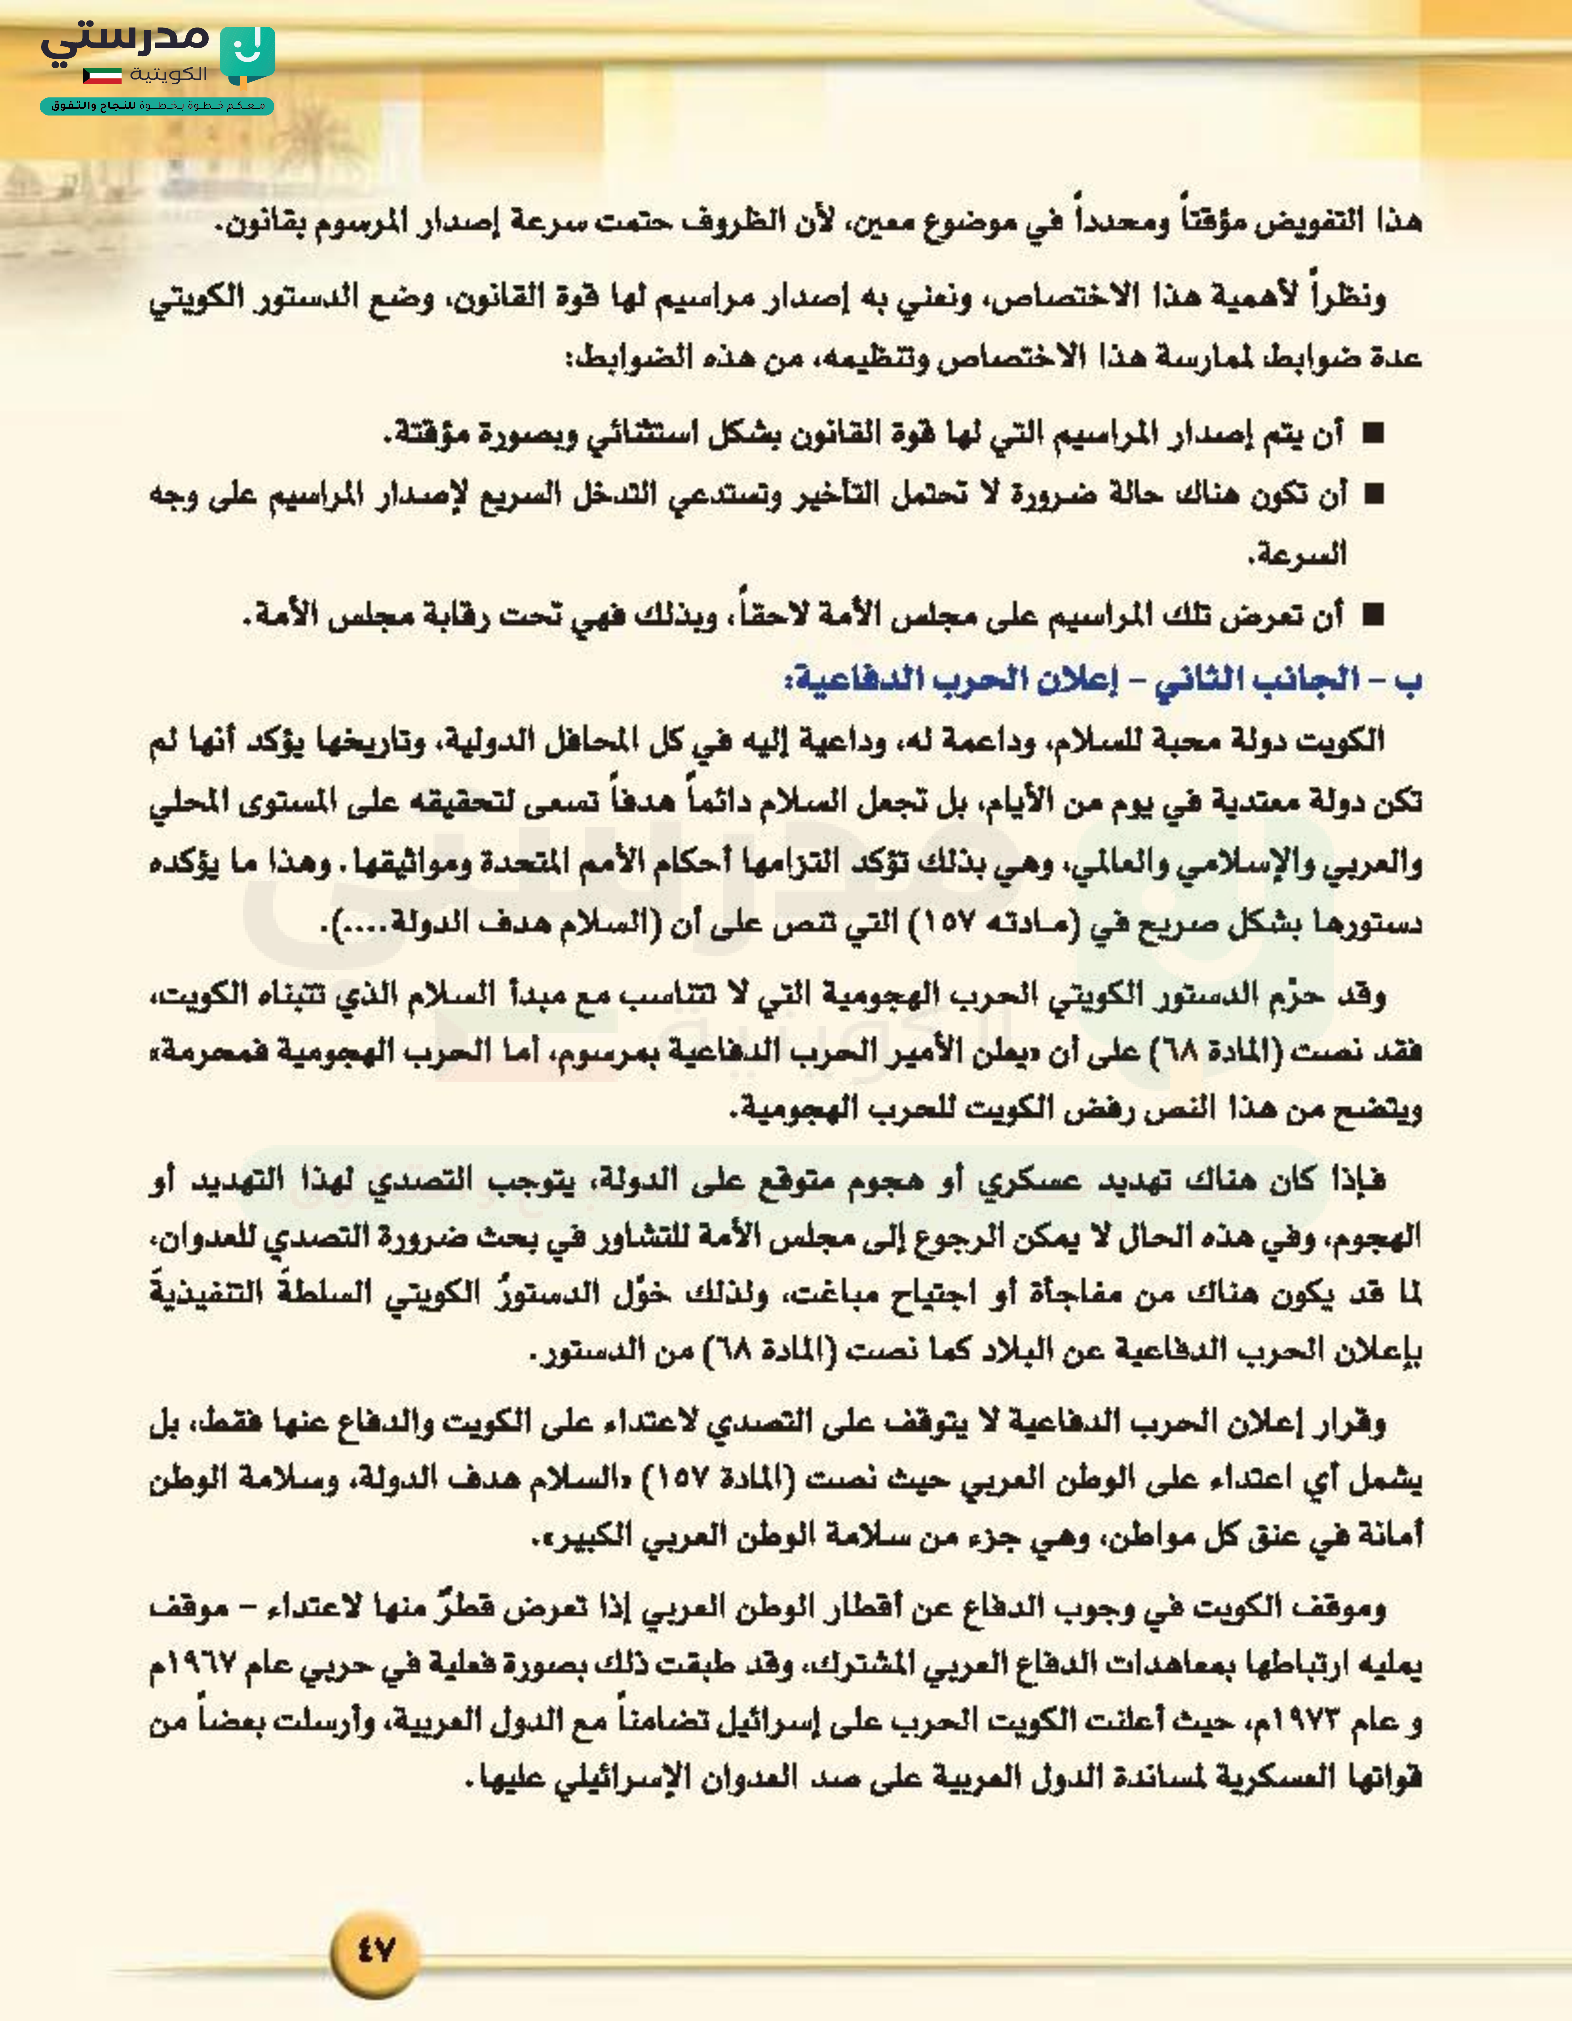 مدرستي
الكويتية
معكم خطوة بخطوة للنجاح والتفوق
هذا التفويض مؤقتاً ومحدداً في موضوع معين، لأن الظروف حتمت سرعة إصدار المرسوم بقانون.
ونظراً لأهمية هذا الاختصاص، ونعني به إصدار مراسيم لها قوة القانون، وضع الدستور الكويتي
عدة ضوابط لممارسة هذا الاختصاص وتنظيمه، من هذه الضوابط:
■ أن يتم إصدار المراسيم التي لها قوة القانون بشكل استثنائي وبصورة مؤقتة.
■ أن تكون هناك حالة ضرورة لا تحتمل التأخير وتستدعي التدخل السريع لإصدار المراسيم على وجه
السرعة.
■ أن تعرض تلك المراسيم على مجلس الأمة لاحقاً، وبذلك فهي تحت رقابة مجلس الأمة.
ب – الجانب الثاني – إعلان الحرب الدفاعية:
الكويت دولة محبة للسلام، وداعمة له، وداعية إليه في كل المحافل الدولية، وتاريخها يؤكد أنها لم
تكن دولة معتدية في يوم من الأيام، بل تجعل السلام دائماً هدفاً تسعى لتحقيقه على المستوى المحلي
والعربي والإسلامي والعالمي، وهي بذلك تؤكد التزامها أحكام الأمم المتحدة ومواثيقها. وهذا ما يؤكده
دستورها بشكل صريح في (مادته ١٥٧) التي تنص على أن (السلام هدف الدولة....).
وقد حرّم الدستور الكويتي الحرب الهجومية التي لا تتناسب مع مبدأ السلام الذي تتبناه الكويت،
فقد نصت (المادة ٦٨) على أن «يعلن الأمير الحرب الدفاعية بمرسوم، أما الحرب الهجومية فمحرمة»
ويتضح من هذا النص رفض الكويت للحرب الهجومية.
فإذا كان هناك تهديد عسكري أو هجوم متوقع على الدولة، يتوجب التصدي لهذا التهديد أو
الهجوم، وفي هذه الحال لا يمكن الرجوع إلى مجلس الأمة للتشاور في بحث ضرورة التصدي للعدوان،
لما قد يكون هناك من مفاجأة أو اجتياح مباغت، ولذلك خوّل الدستورُ الكويتي السلطةَ التنفيذيةَ
بإعلان الحرب الدفاعية عن البلاد كما نصت (المادة ٦٨) من الدستور.
وقرار إعلان الحرب الدفاعية لا يتوقف على التصدي لاعتداء على الكويت والدفاع عنها فقط، بل
يشمل أي اعتداء على الوطن العربي حيث نصت (المادة ١٥٧) «السلام هدف الدولة، وسلامة الوطن
أمانة في عنق كل مواطن، وهي جزء من سلامة الوطن العربي الكبير».
وموقف الكويت في وجوب الدفاع عن أقطار الوطن العربي إذا تعرض قطرٌ منها لاعتداء – موقف
يمليه ارتباطها بمعاهدات الدفاع العربي المشترك، وقد طبقت ذلك بصورة فعلية في حربي عام ١٩٦٧م
و عام ١٩٧٣م، حيث أعلنت الكويت الحرب على إسرائيل تضامناً مع الدول العربية، وأرسلت بعضاً من
قواتها العسكرية لمساندة الدول العربية على صد العدوان الإسرائيلي عليها.
٤٧